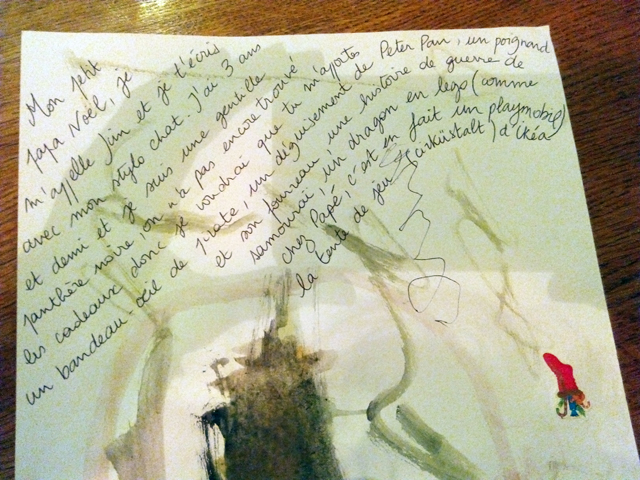 Mon petit
papa Noël, je
m'appelle Jim et je t'écris
avec mon stylo chat. J'ai 3 ans
et demi et je suis une gentille
panthère noire, on n'a pas encore trouvé
les cadeaux donc je voudrai que tu m'apportes
un bandeau-œil de pirate, un déguisement de Peter Pan, un poignard
et son fourreau, une histoire de guerre de
samouraï, un dragon en lego (comme
chez Papé, c'est en fait un playmobil)
la tente de jeu d'ikéa